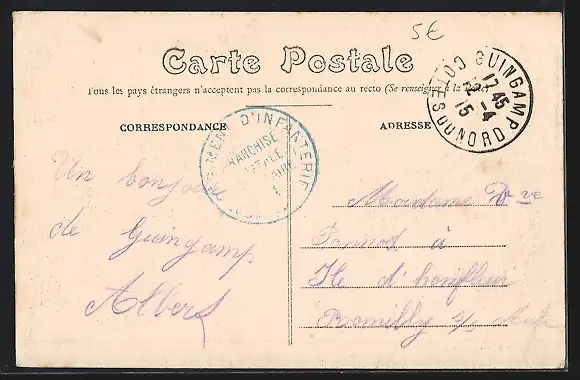 5€
Carte Postale
Tous les pays étrangers n'acceptent pas la correspondance au recto (Se renseigner à la Poste)
CORRESPONDANCE
ADRESSE
GUINGAMP
17 45
22-4
15
COTES DU NORD
D'INFANTERIE
FRANCHISE
Un bonjour
de Guingamp
Albert
Madame Vve
à
Ile d'honfleur
Romilly s/s Aube